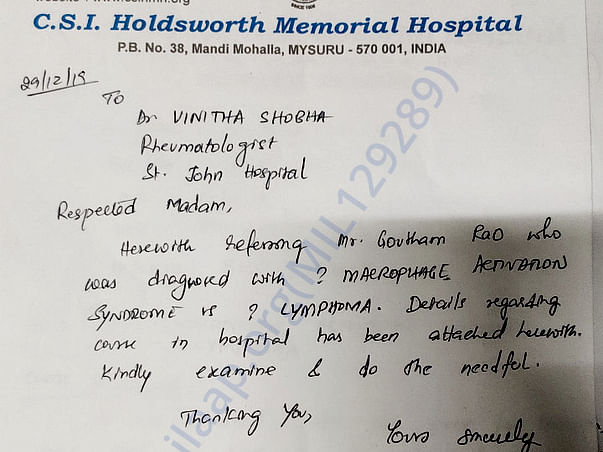 C.S.I. Holdsworth Memorial Hospital
P.B. No. 38, Mandi Mohalla, MYSURU - 570 001, INDIA
29/12/19
To
Dr VINITHA SHOBHA
Rheumatologist
St. John Hospital
Respected Madam,
Herewith referring Mr. Goutham Rao who
was diagnosed with ? MACROPHAGE ACTIVATION
SYNDROME vs ? LYMPHOMA. Details regarding
course in hospital has been attached herewith.
Kindly examine & do the needful.
Thanking You,
Yours sincerely
milaap.org(MIL129289)